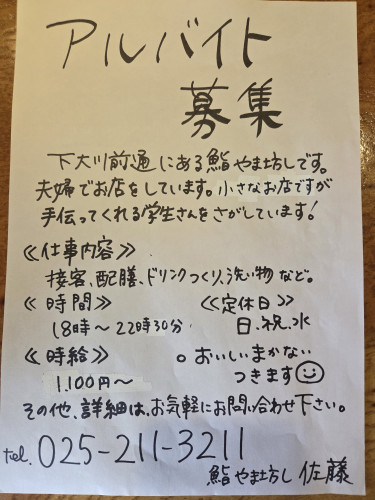 アルバイト
募集
下大川前通にある鮨やま坊しです。
夫婦でお店をしています。小さなお店ですが
手伝ってくれる学生さんをさがしています！
≪仕事内容≫
接客、配膳、ドリンクつくり、洗い物など。
≪時間≫
18時〜22時30分
≪定休日≫
日、祝、水
≪時給≫
1,100円〜
○おいしいまかない
つきます
その他、詳細は、お気軽にお問い合わせ下さい。
tel. 025-211-3211
鮨やま坊し 佐藤